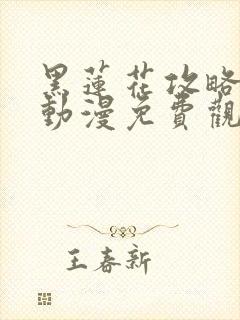 黑蓮花攻略
動漫免費觀
王春新